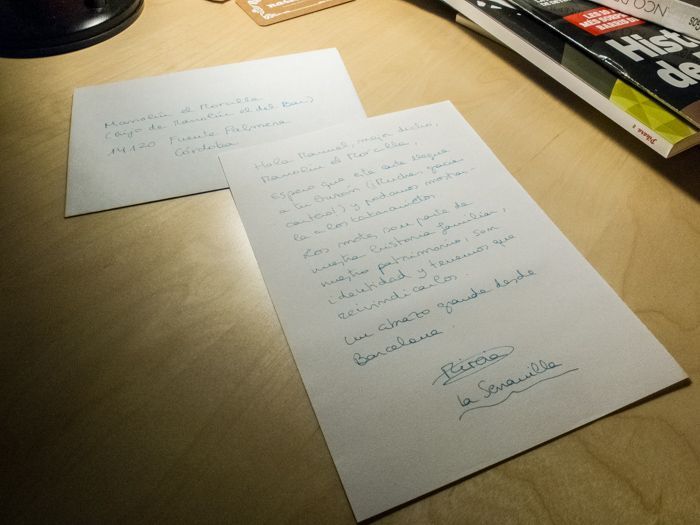 Manolín el Morcilla
(hijo de Manolín el del Bar)
14120 Fuente Palmera
Córdoba
Hola Manuel, mejor dicho,
Manolín el Morcilla,
Espero que esta carta llegue
a tu buzón (¡Muchas gracias
cartero!) y podamos mostrar-
la a los tataranietos
Los motes son parte de
nuestra historia familiar,
nuestro patrimonio, son
identidad y tenemos que
reivindicarlos.
Un abrazo grande desde
Barcelona.
la Serranilla
Hist
de